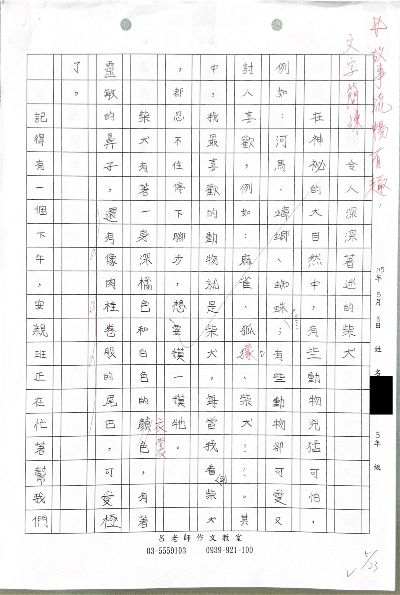 故事流暢有趣,
文字簡練
115年5月8日 姓名 5年級
令人深深著迷的柴犬
在神祕的大自然中,有些動物兇猛可怕,
例如:河馬、蟑螂、蜘蛛;有些動物卻可愛又
討人喜歡,例如:麻雀、狐獴、柴犬……。其
中,我最喜歡的動物就是柴犬,每當我看到柴犬
,都忍不住停下腳步,想要摸一摸牠。
柴犬有著一身深橘色和白色的顏色,有著
靈敏的鼻子,還有像肉桂卷般的尾巴,可愛極
了。
記得有一個下午,安親班正在忙著幫我們
呂老師作文教室
03-5559103 0939-921-100
5/23